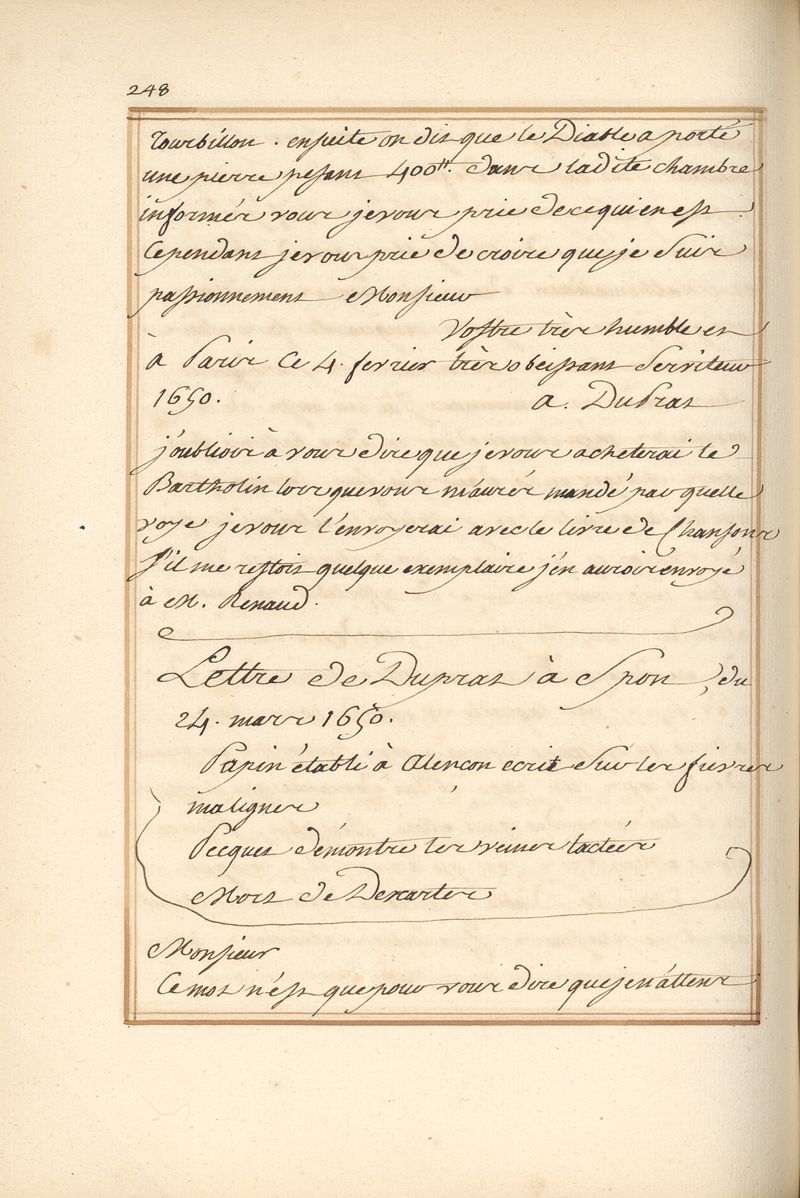 248
tourbillon. ensuite on dit que le Diable a porté
une pierre pesant 400tt. dans ladite chambre
informés vous je vous prie de ce qui en est.
Cependant je vous prie de croire que je suis
passionnement Monsieur
Vostre très humble et
à Paris ce 4. fevrier très obeissant serviteur
1650. a. DuPrat
j'oubliois à vous dire que je vous acheterai le
Bartholin lors que vous m'aurés mandé par quelle
voye je vous l'envoyerai avec le livre de Chansons
s'il me restoit quelque exemplaire j'en aurois envoyé
à M. Renaud.
Lettre de Duprat à Spon, du
24. mars 1650.
Papin établi à Alencon ecrit sur les fievres
malignes
Pecquet démontre les veines lactées
Mort de Descartes
Monsieur
Ce mot n'est que pour vous dire que je n'attens